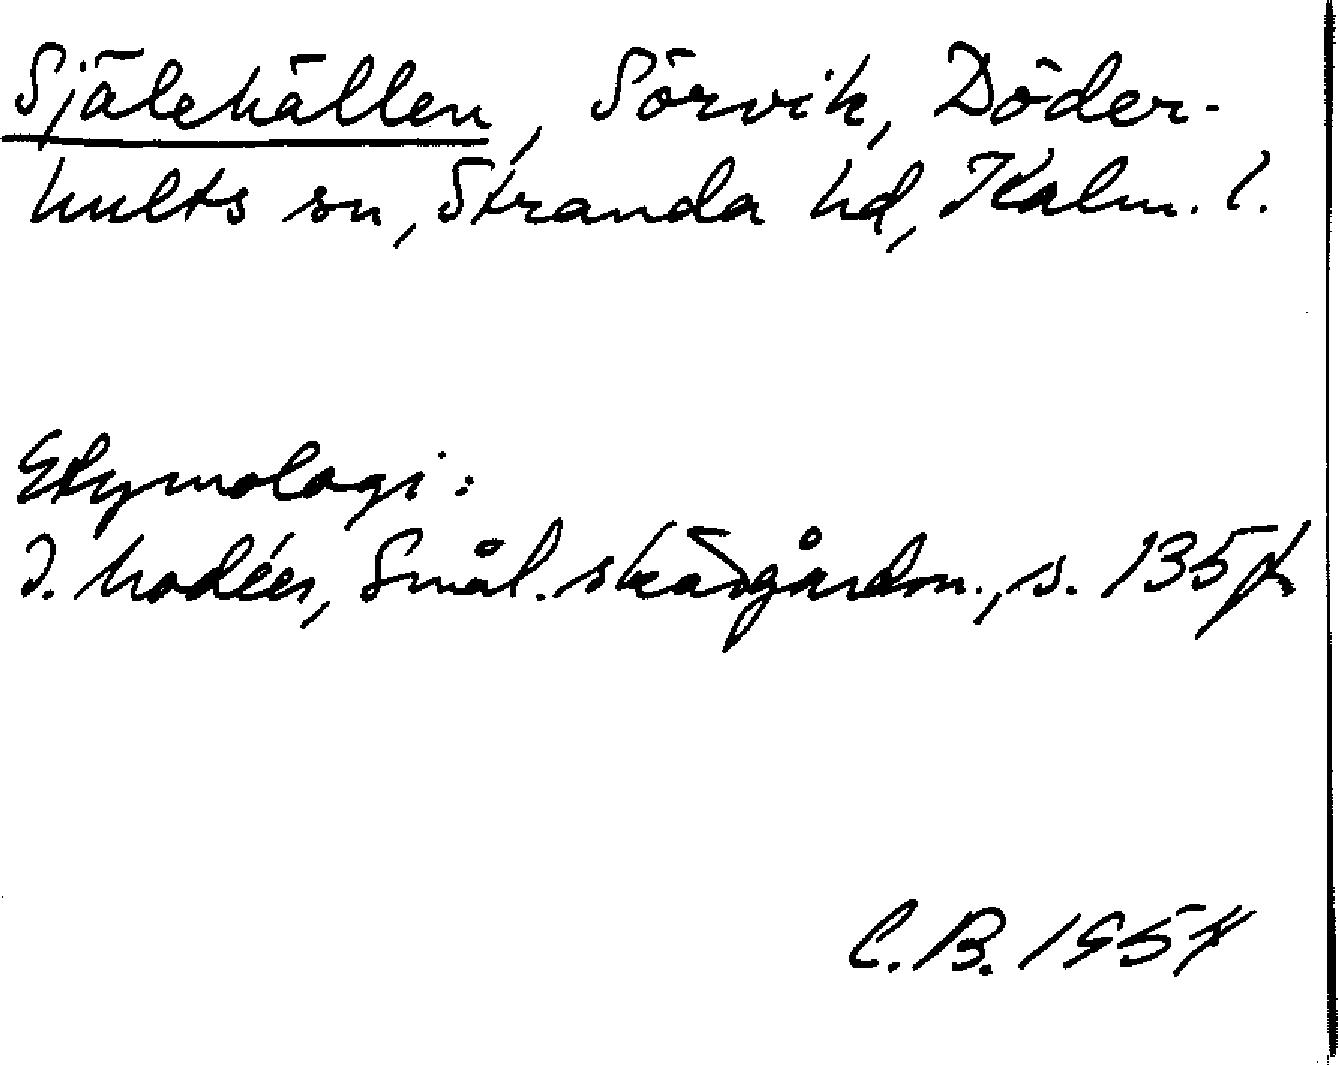 Själehällen, Sörvik, Döder-
hults sn, Stranda hd, Kalm. l.
Etymologi:
I. Modéer, Smål. skärgårdsn., s. 135 f.
C.B. 1957